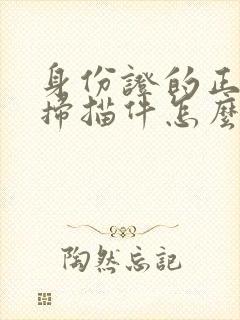 身份證的正
掃描件怎麼
陶然忘記